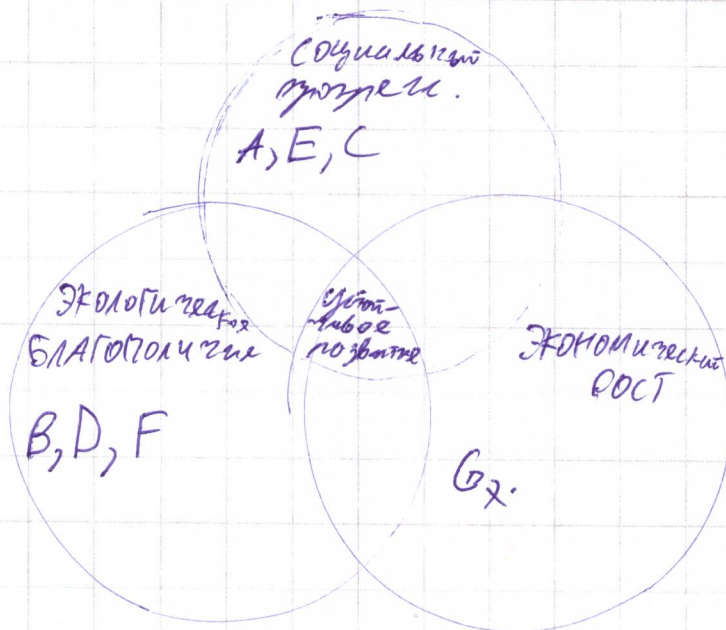 Социальный
прогресс.
A, E, C
ЭКОЛОГИческое
БЛАГОПОЛИЧИЕ
B, D, F
Устой-
чивое
развитие
ЭКОНОМИческий
РОСТ
G